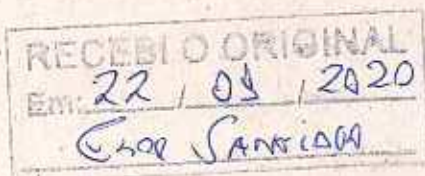 RECEBI O ORIGINAL
Em: 22 / 09 / 2020
Santiago